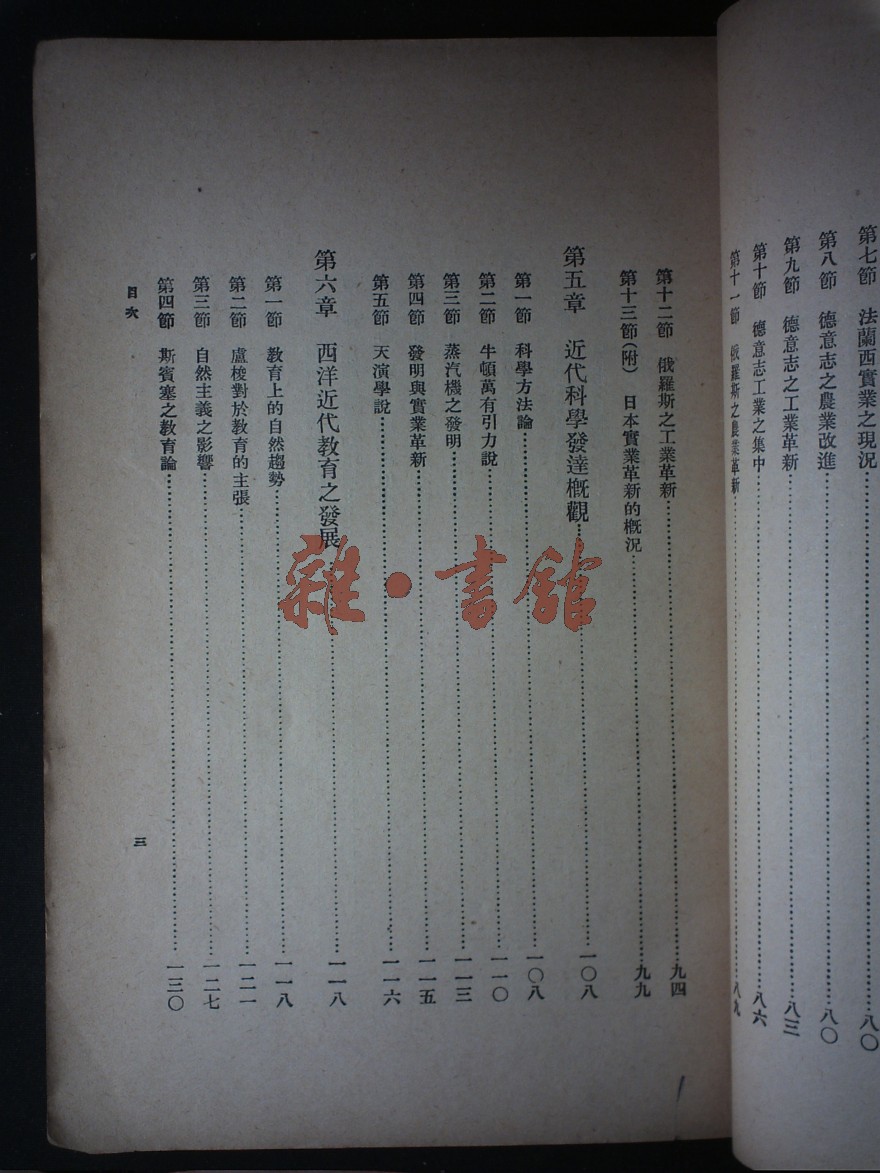 第七節　法蘭西實業之現況……八〇
第八節　德意志之農業改進……八〇
第九節　德意志之工業革新……八三
第十節　德意志工業之集中……八六
第十一節　俄羅斯之農業革新……八九
第十二節　俄羅斯之工業革新……九四
第十三節(附)　日本實業革新的槪況……九九
第五章　近代科學發達槪觀……一〇八
第一節　科學方法論……一〇八
第二節　牛頓萬有引力說……一一〇
第三節　蒸汽機之發明……一一三
第四節　發明與實業革新……一一五
第五節　天演學說……一一六
第六章　西洋近代教育之發展……一一八
第一節　教育上的自然趨勢……一一八
第二節　盧梭對於教育的主張……一二一
第三節　自然主義之影響……一二七
第四節　斯賓塞之教育論……一三〇
目次
三
雜·書館